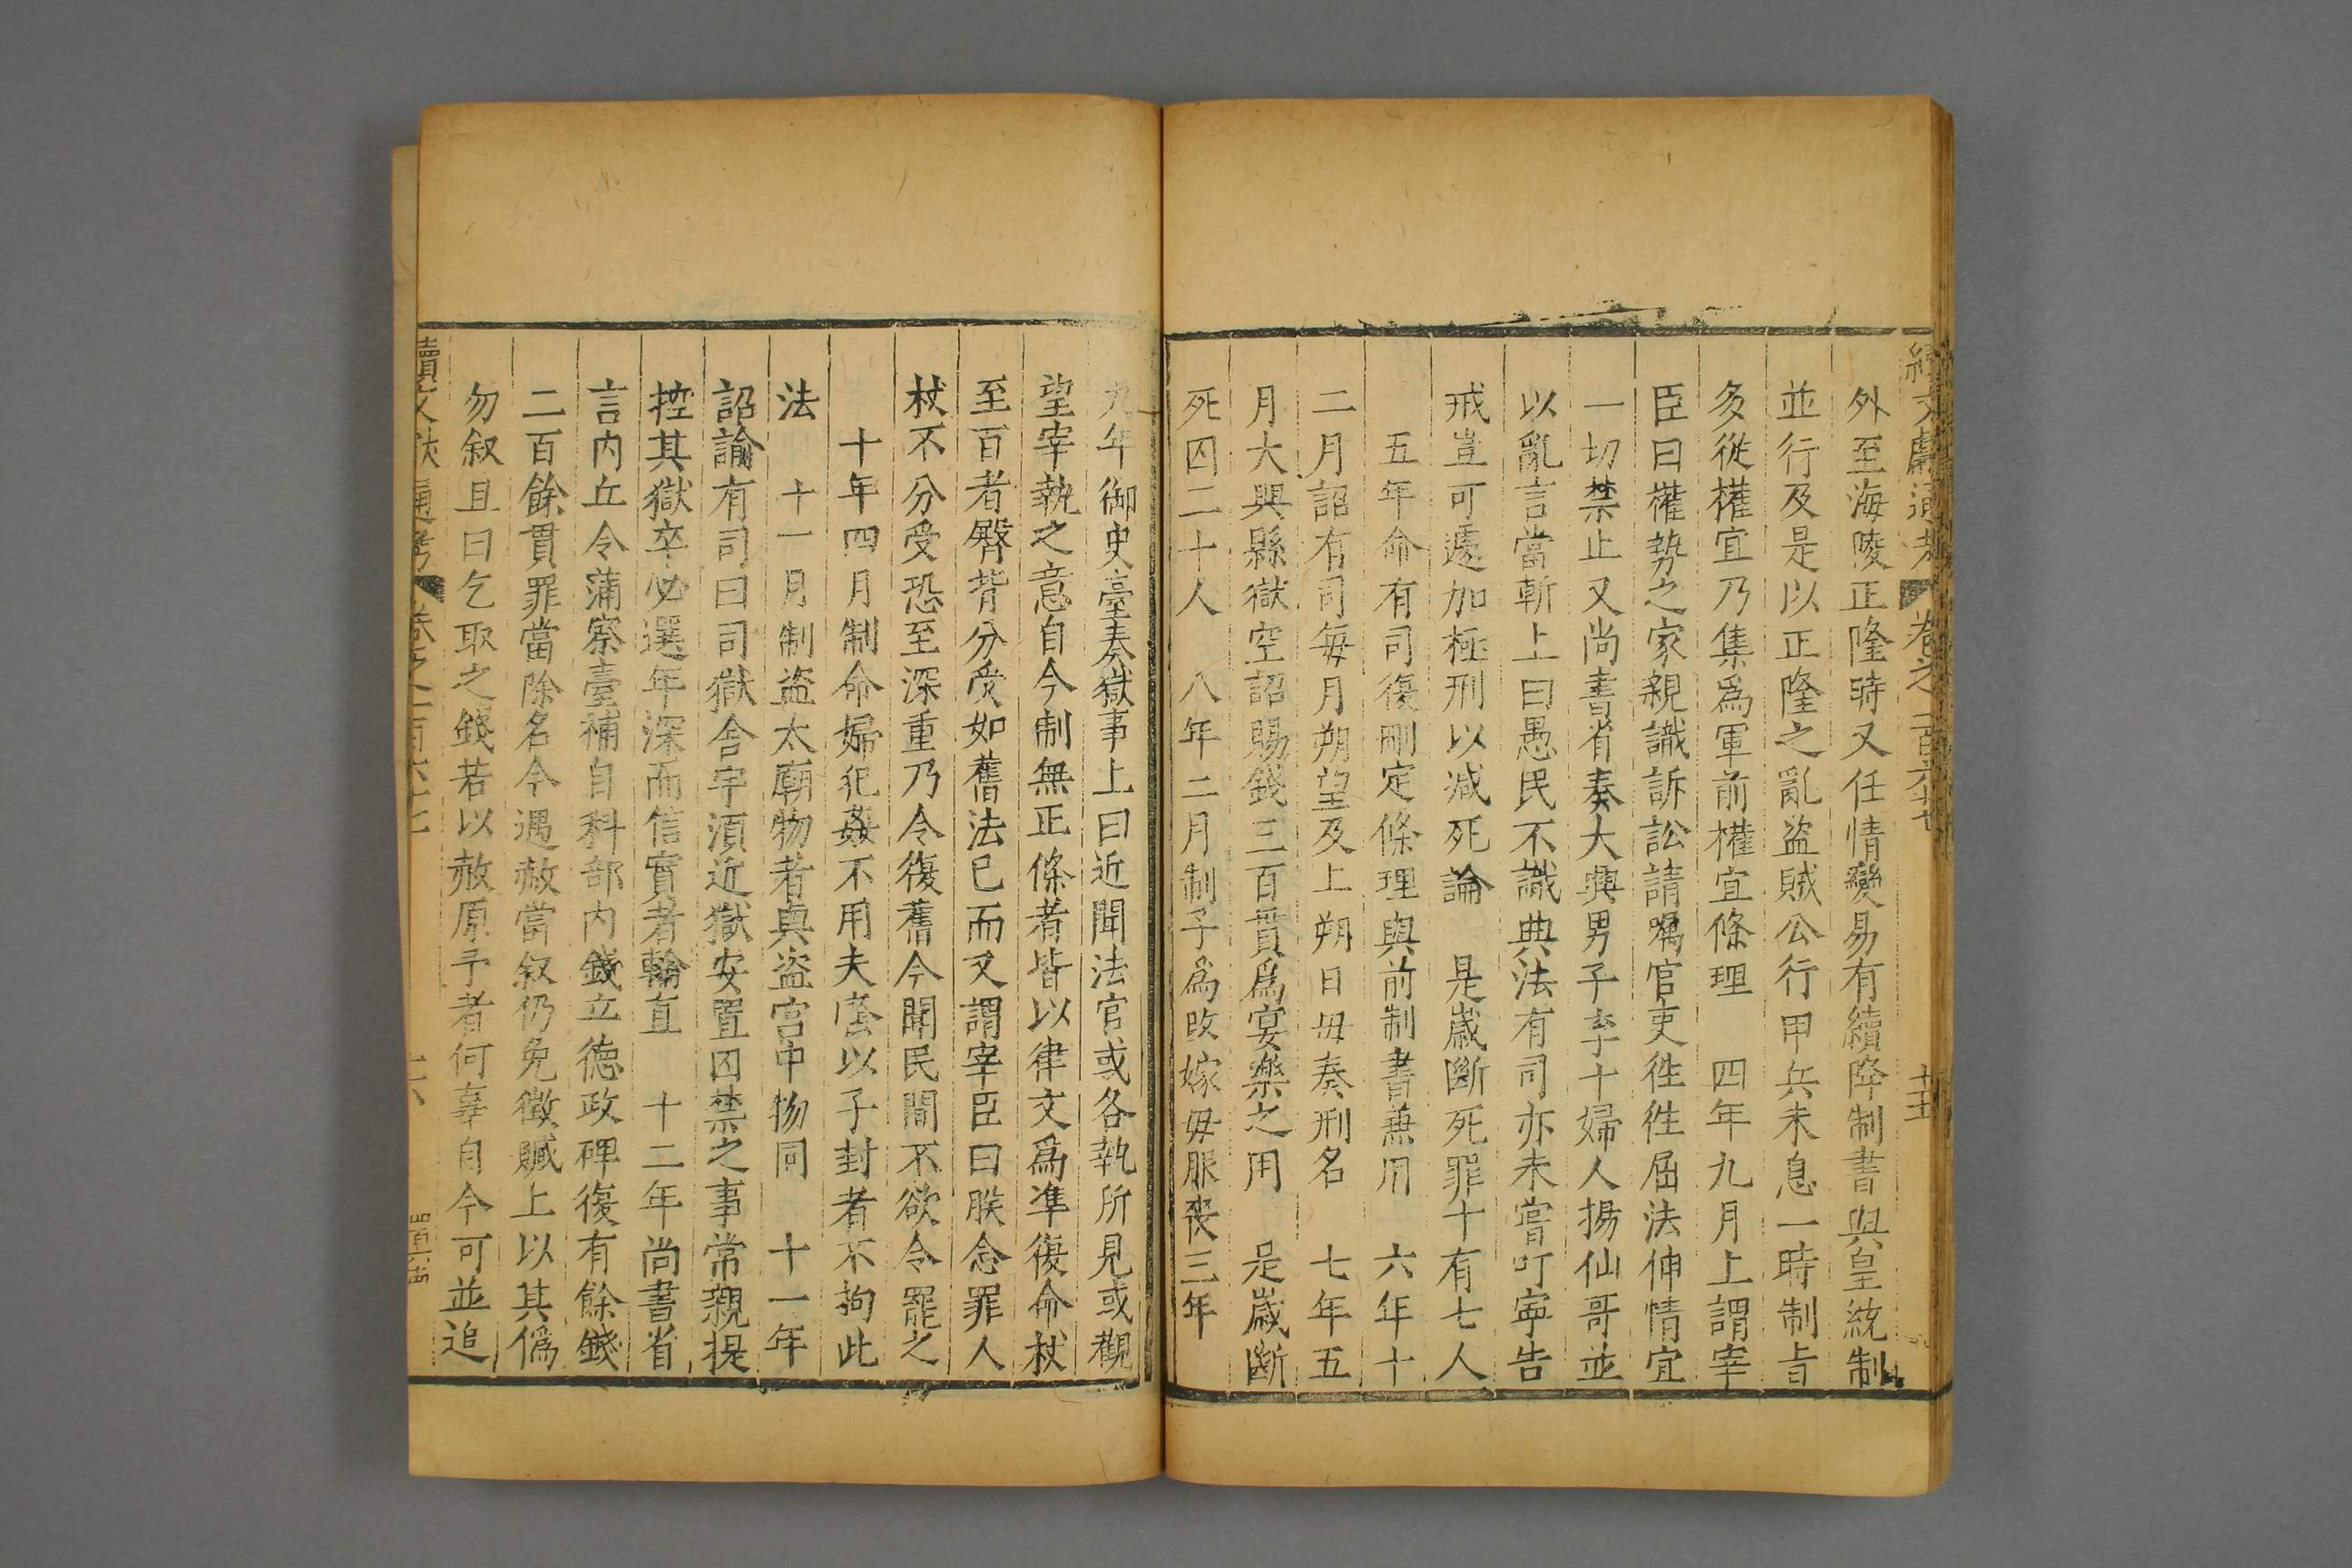 續文獻通考 卷之一百六十七 十五
外至海陵正隆時又任情變易有續降制書與皇統制
並行及是以正隆之亂盜賊公行甲兵未息一時制旨
多從權宜乃集爲軍前權宜條理 四年九月上謂宰
臣曰權勢之家親識訴訟請囑官吏徃徃屈法伸情宜
一切禁止又尚書省奏大興男子李十婦人楊仙哥並
以亂言當斬上曰愚民不識典法有司亦未嘗叮寧告
戒豈可遽加極刑以减死論 是歲斷死罪十有七人
五年命有司復刪定條理與前制書兼用 六年十
二月詔有司每月朔望及上朔日毋奏刑名 七年五
月大興縣獄空詔賜錢三百貫爲宴樂之用 是歲斷
死囚二十人 八年二月制子爲改嫁毋服喪三年
九年御史臺奏獄事上曰近聞法官或各執所見或觀
望宰執之意自今制無正條者皆以律文爲凖復命杖
至百者臀背分受如舊法已而又謂宰臣曰朕念罪人
杖不分受恐至深重乃令復舊今聞民間不欲令罷之
十年四月制命婦犯姦不用夫䕃以子封者不拘此
法 十一月制盜太廟物者與盜宫中物同 十一年
詔諭有司曰司獄舍宇湏近獄安置囚禁之事常親提
控其獄卒必選年深而信實者輪直 十二年尚書省
言内丘令蒲察臺補自科部内錢立德政碑復有餘錢
二百餘貫罪當除名今遇赦當叙仍免徵贓上以其僞
勿叙且曰乞取之錢若以赦原予者何辜自今可並追
續文献通考 卷之一百六十七 十六